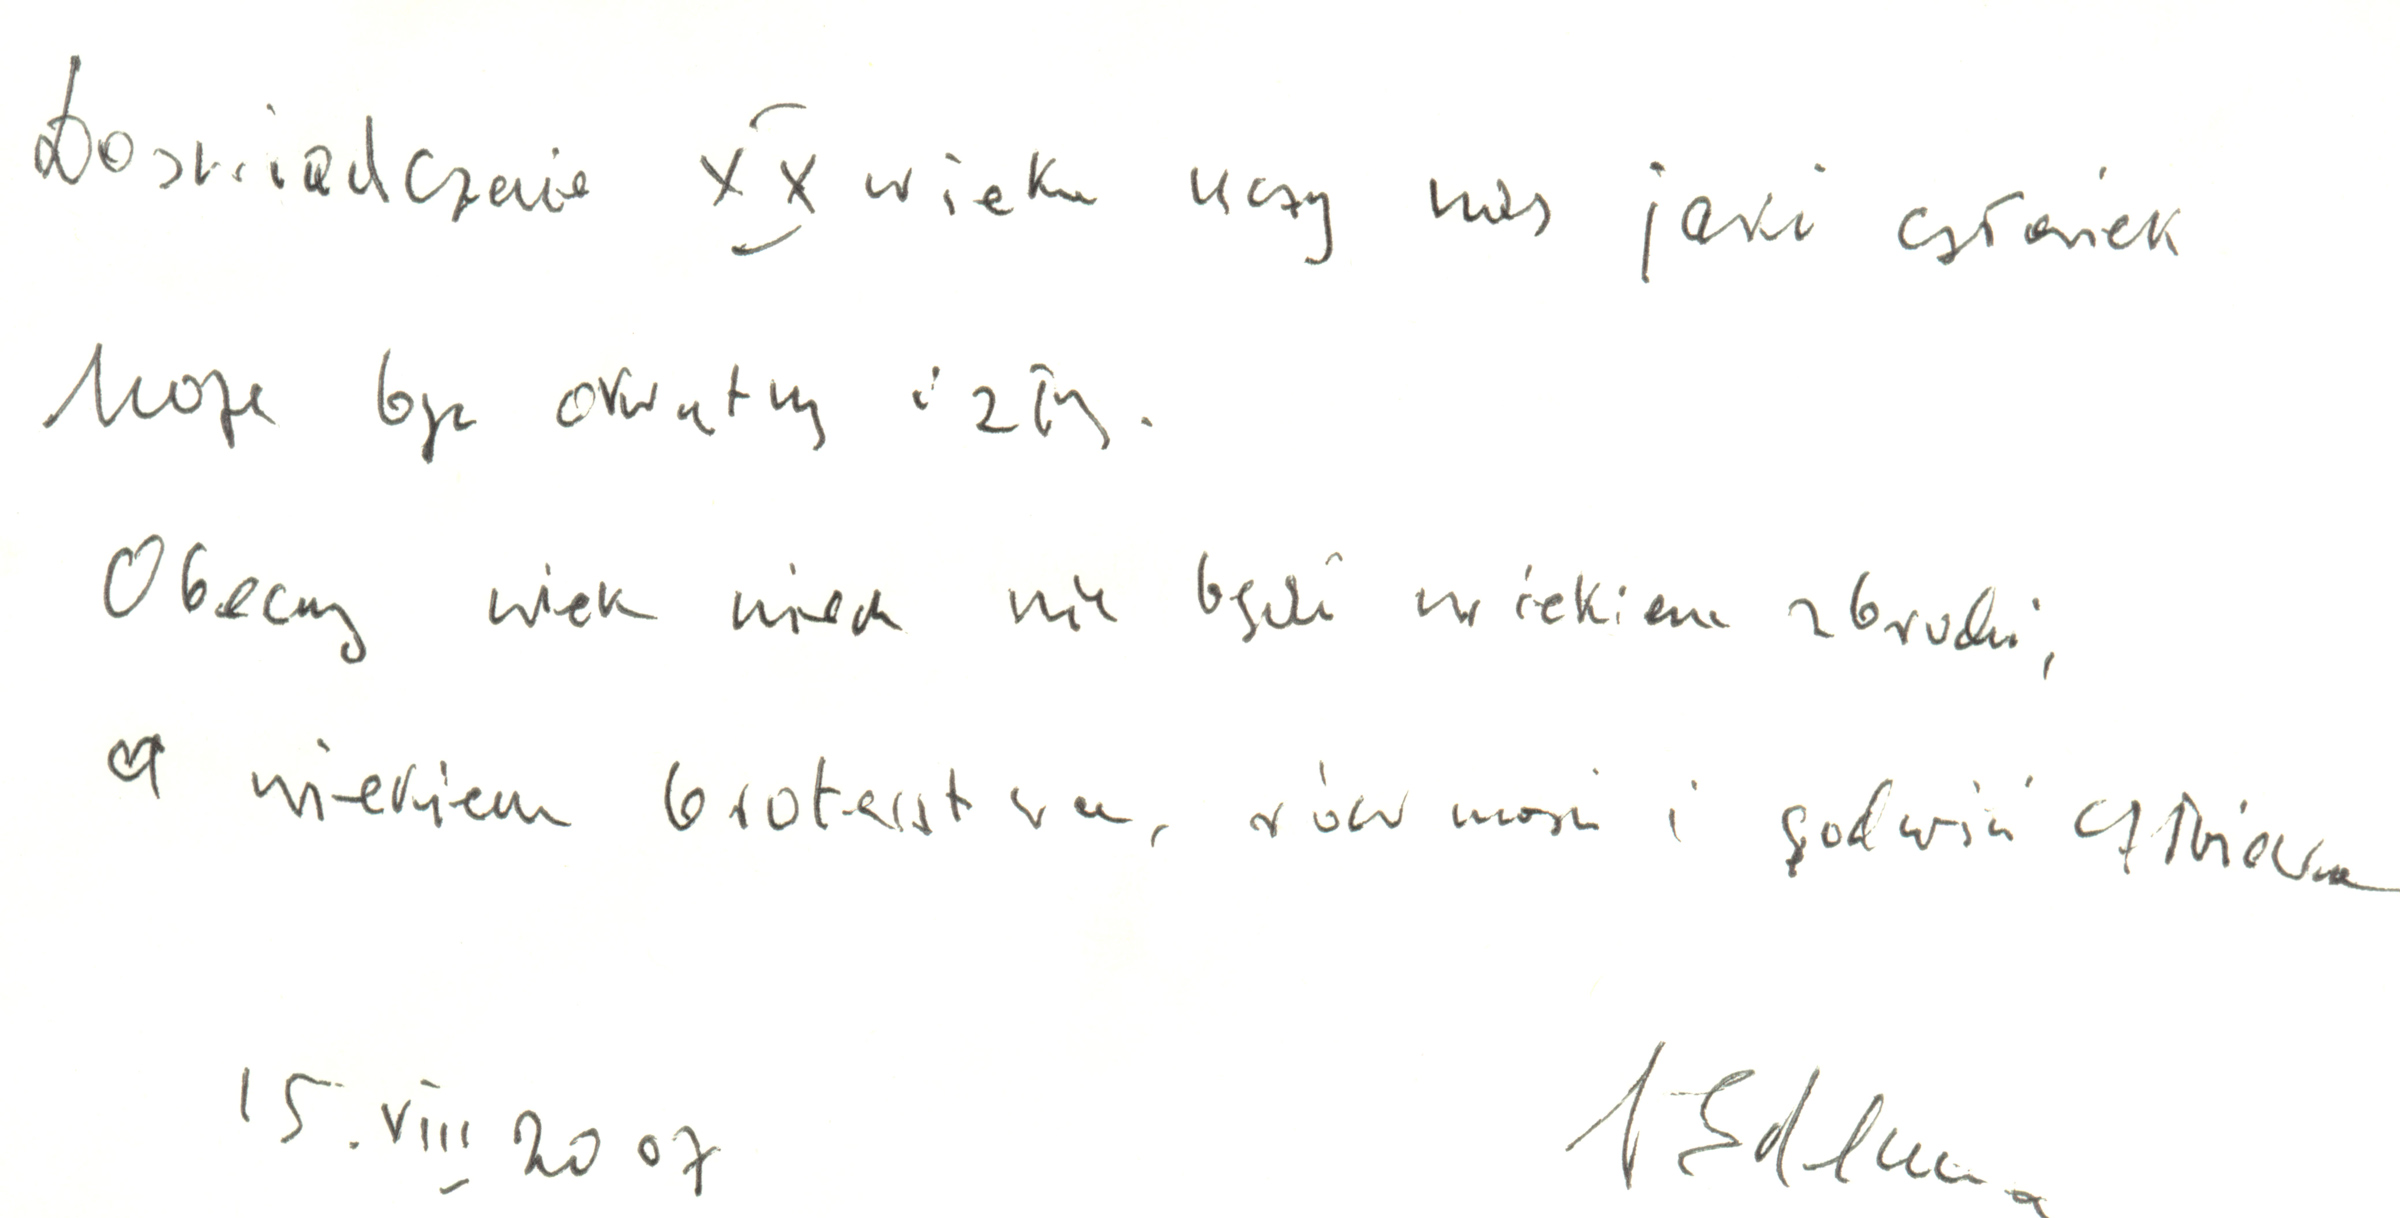 Doświadczenie XX wieku uczy nas jaki człowiek
może być okrutny i zły.
Obecny wiek niech nie będzie wiekiem zbrodni,
a wiekiem braterstwa, równości i godności człowieka
15.VIII 2007
M Edelman